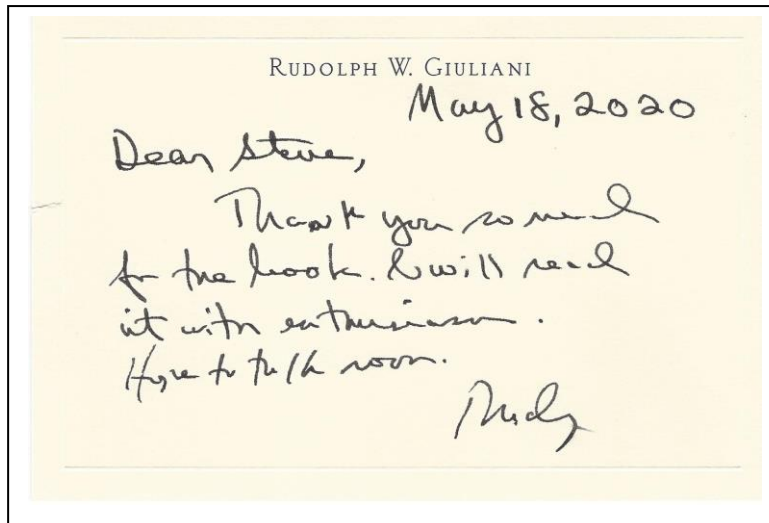 RUDOLPH W. GIULIANI
May 18, 2020
Dear Steve,
Thank you so much
for the book. I will read
it with enthusiasm.
Hope to talk soon.
Rudy